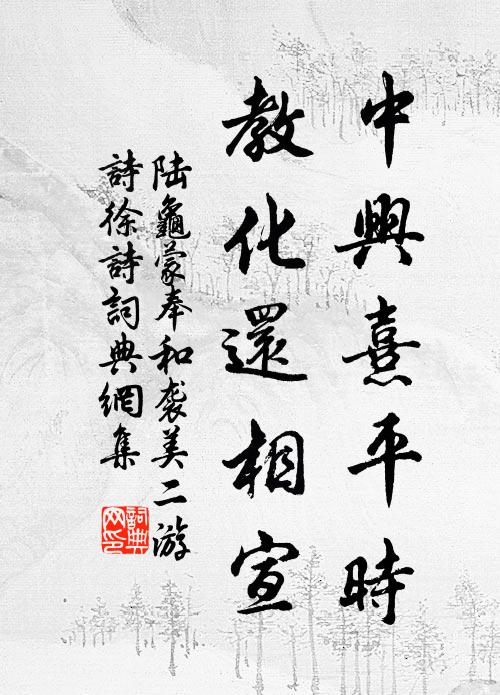 中興熹平時
教化還相宣
陆龜蒙奉和袭美二游
詩徐詩詞典網集
詞典网印